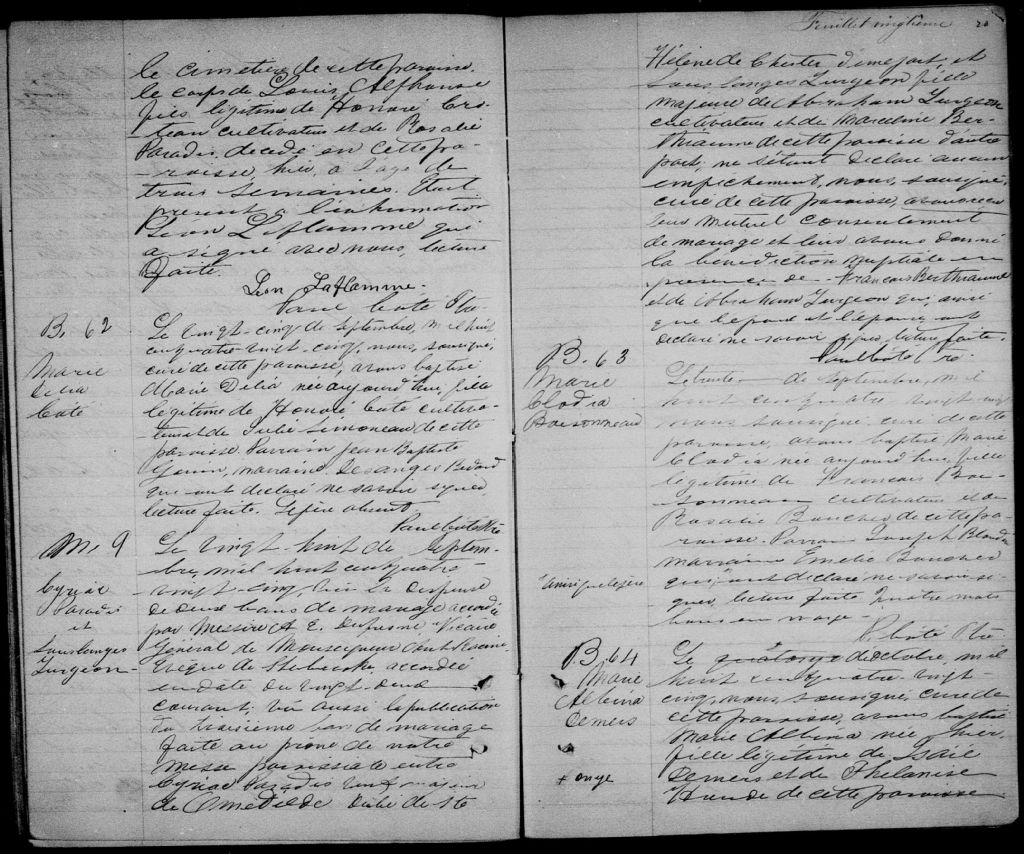 le cimetière de cette paroisse
le corps de Louis Alphonse
fils légitime de Honoré Cro-
teau cultivateur et de Rosalie
Paradis, décédé en cette pa-
roisse, hier, à l'age de
trois semaines. Etait
présent à l'inhumation
Léon Laflamme qui
a signé avec nous, lecture
faite.
Léon Laflamme.
Paul Coté Ptre
B. 62
Marie
Delia
Coté
Le vingt-cinq de septembre, mil huit
cent quatre vingt-cinq, nous, soussigné,
curé de cette paroisse, avons baptisé
Marie Delia née aujourd'hui, fille
légitime de Honoré Coté cultiva-
teur et de Julie Simoneau de cette
paroisse. Parrain Jean Baptiste
marraine Desanges Bedard
qui ont declaré ne savoir signer
lecture faite. Le père absent.
Paul Coté Ptre
M. 9
Cyriac
Paradis
et
Sans langes
Turgeon
Le vingt-huit de septem-
bre, mil huit cent quatre-
vingt-cinq, vu la dispense
de deux bans de mariage accordée
par Messire A. E. Dufresne Vicaire
Général de Monseigneur Ant. Racine
Evêque de Sherbrooke accordée
en date du vingt-deux
courant; vu aussi la publication
du troisième ban de mariage
faite au prone de notre
messe paroissiale entre
Cyriac Paradis
de Ste
Feuillet vingtième 20
Hélène de Chester d'une part, et
Sans langes Turgeon fille
majeure de Abraham Turgeon
cultivateur et de Marceline Ber-
thiaume de cette paroisse d'autre
part; ne s'étant déclaré aucun
empêchement, nous, soussigné,
curé de cette paroisse, avons reçu
leur mutuel consentement
de mariage et leur avons donné
la bénédiction nuptiale en
présence de François Berthiaume
et de Abraham Turgeon qui, ainsi
que l'époux et l'épouse, ont
déclaré ne savoir signer, lecture faite.
Paul Coté Ptre.
B. 63
Marie
Clodia
Boisonneau
Le trente de septembre, mil
huit cent quatre vingt-cinq
nous soussigné, curé de cette
paroisse, avons baptisé Marie
Clodia née aujourd'hui, fille
légitime de François Boi-
sonneau cultivateur et de
Rosalie Boucher de cette pa-
roisse. Parrain Joseph
marraine Emelie Boucher
qui ont declaré ne savoir si-
gner, lecture faite Quatre mots
en marge
ainsi que le père
P. Coté Ptre
B. 64
Marie
Albina
Demers
+ onze
Le quatorze d'octobre, mil
huit cent quatre-vingt-
cinq, nous, soussigné, curé de
cette paroisse, avons baptisé
Marie Albina née + hier
fille légitime de Isaïe
Demers et de Philanise
Houde de cette paroisse